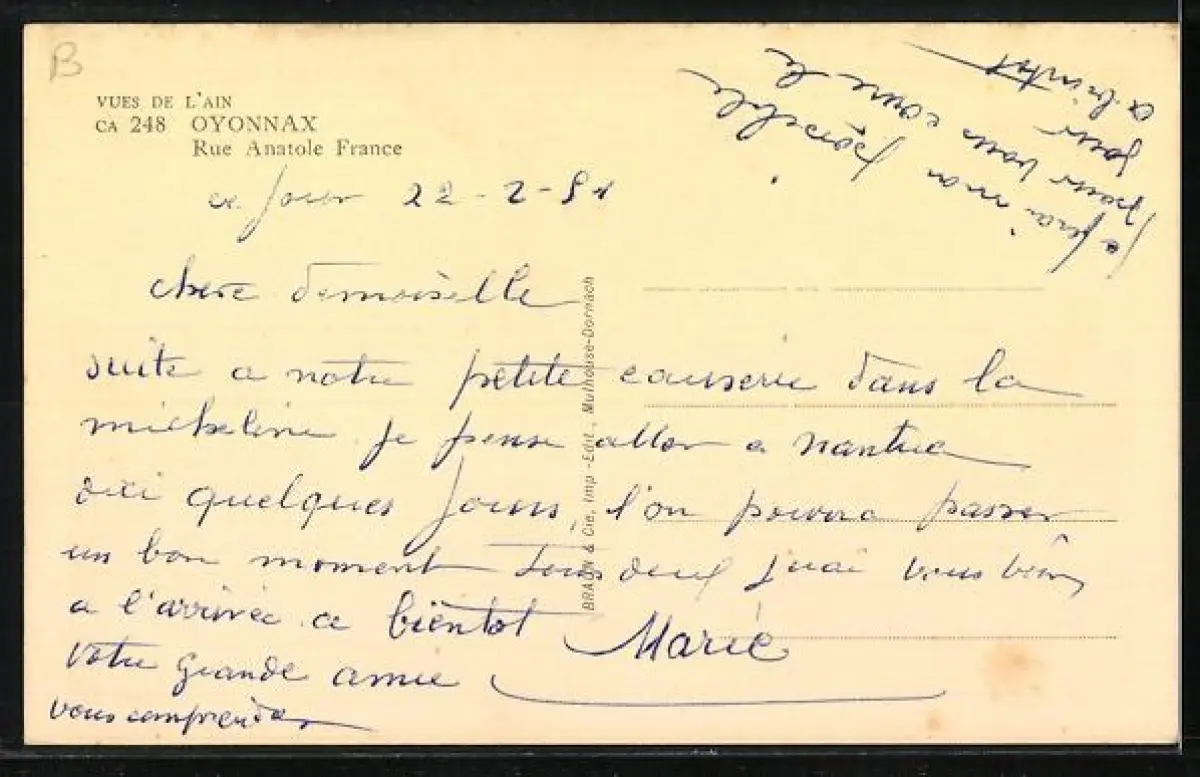 B
VUES DE L'AIN
CA 248 OYONNAX
Rue Anatole France
ce Jour 22-2-51
chere demoiselle
suite a notre petite causerie dans la
micheline je pense aller a nantua
dici quelques Jours, l'on pourra passer
un bon moment Tous deux j'irai vous voir
a l'arrivée a bientot Marie
votre grande amie
vous comprendez
je ferai mon possible
pour vous
jour
a bientot
BRAUN & Cie, Imp-Edit., Mulhouse-Dornach